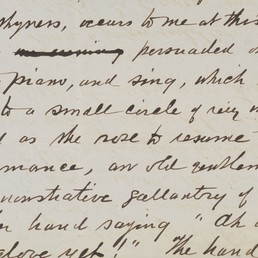 shyness, occurs to me at this
persuaded
piano, and sing, which
to a small circle of very
as she rose to resume
an old gentlem
monstrative gallantry of
hand saying "Ah
glove yet!" The hand